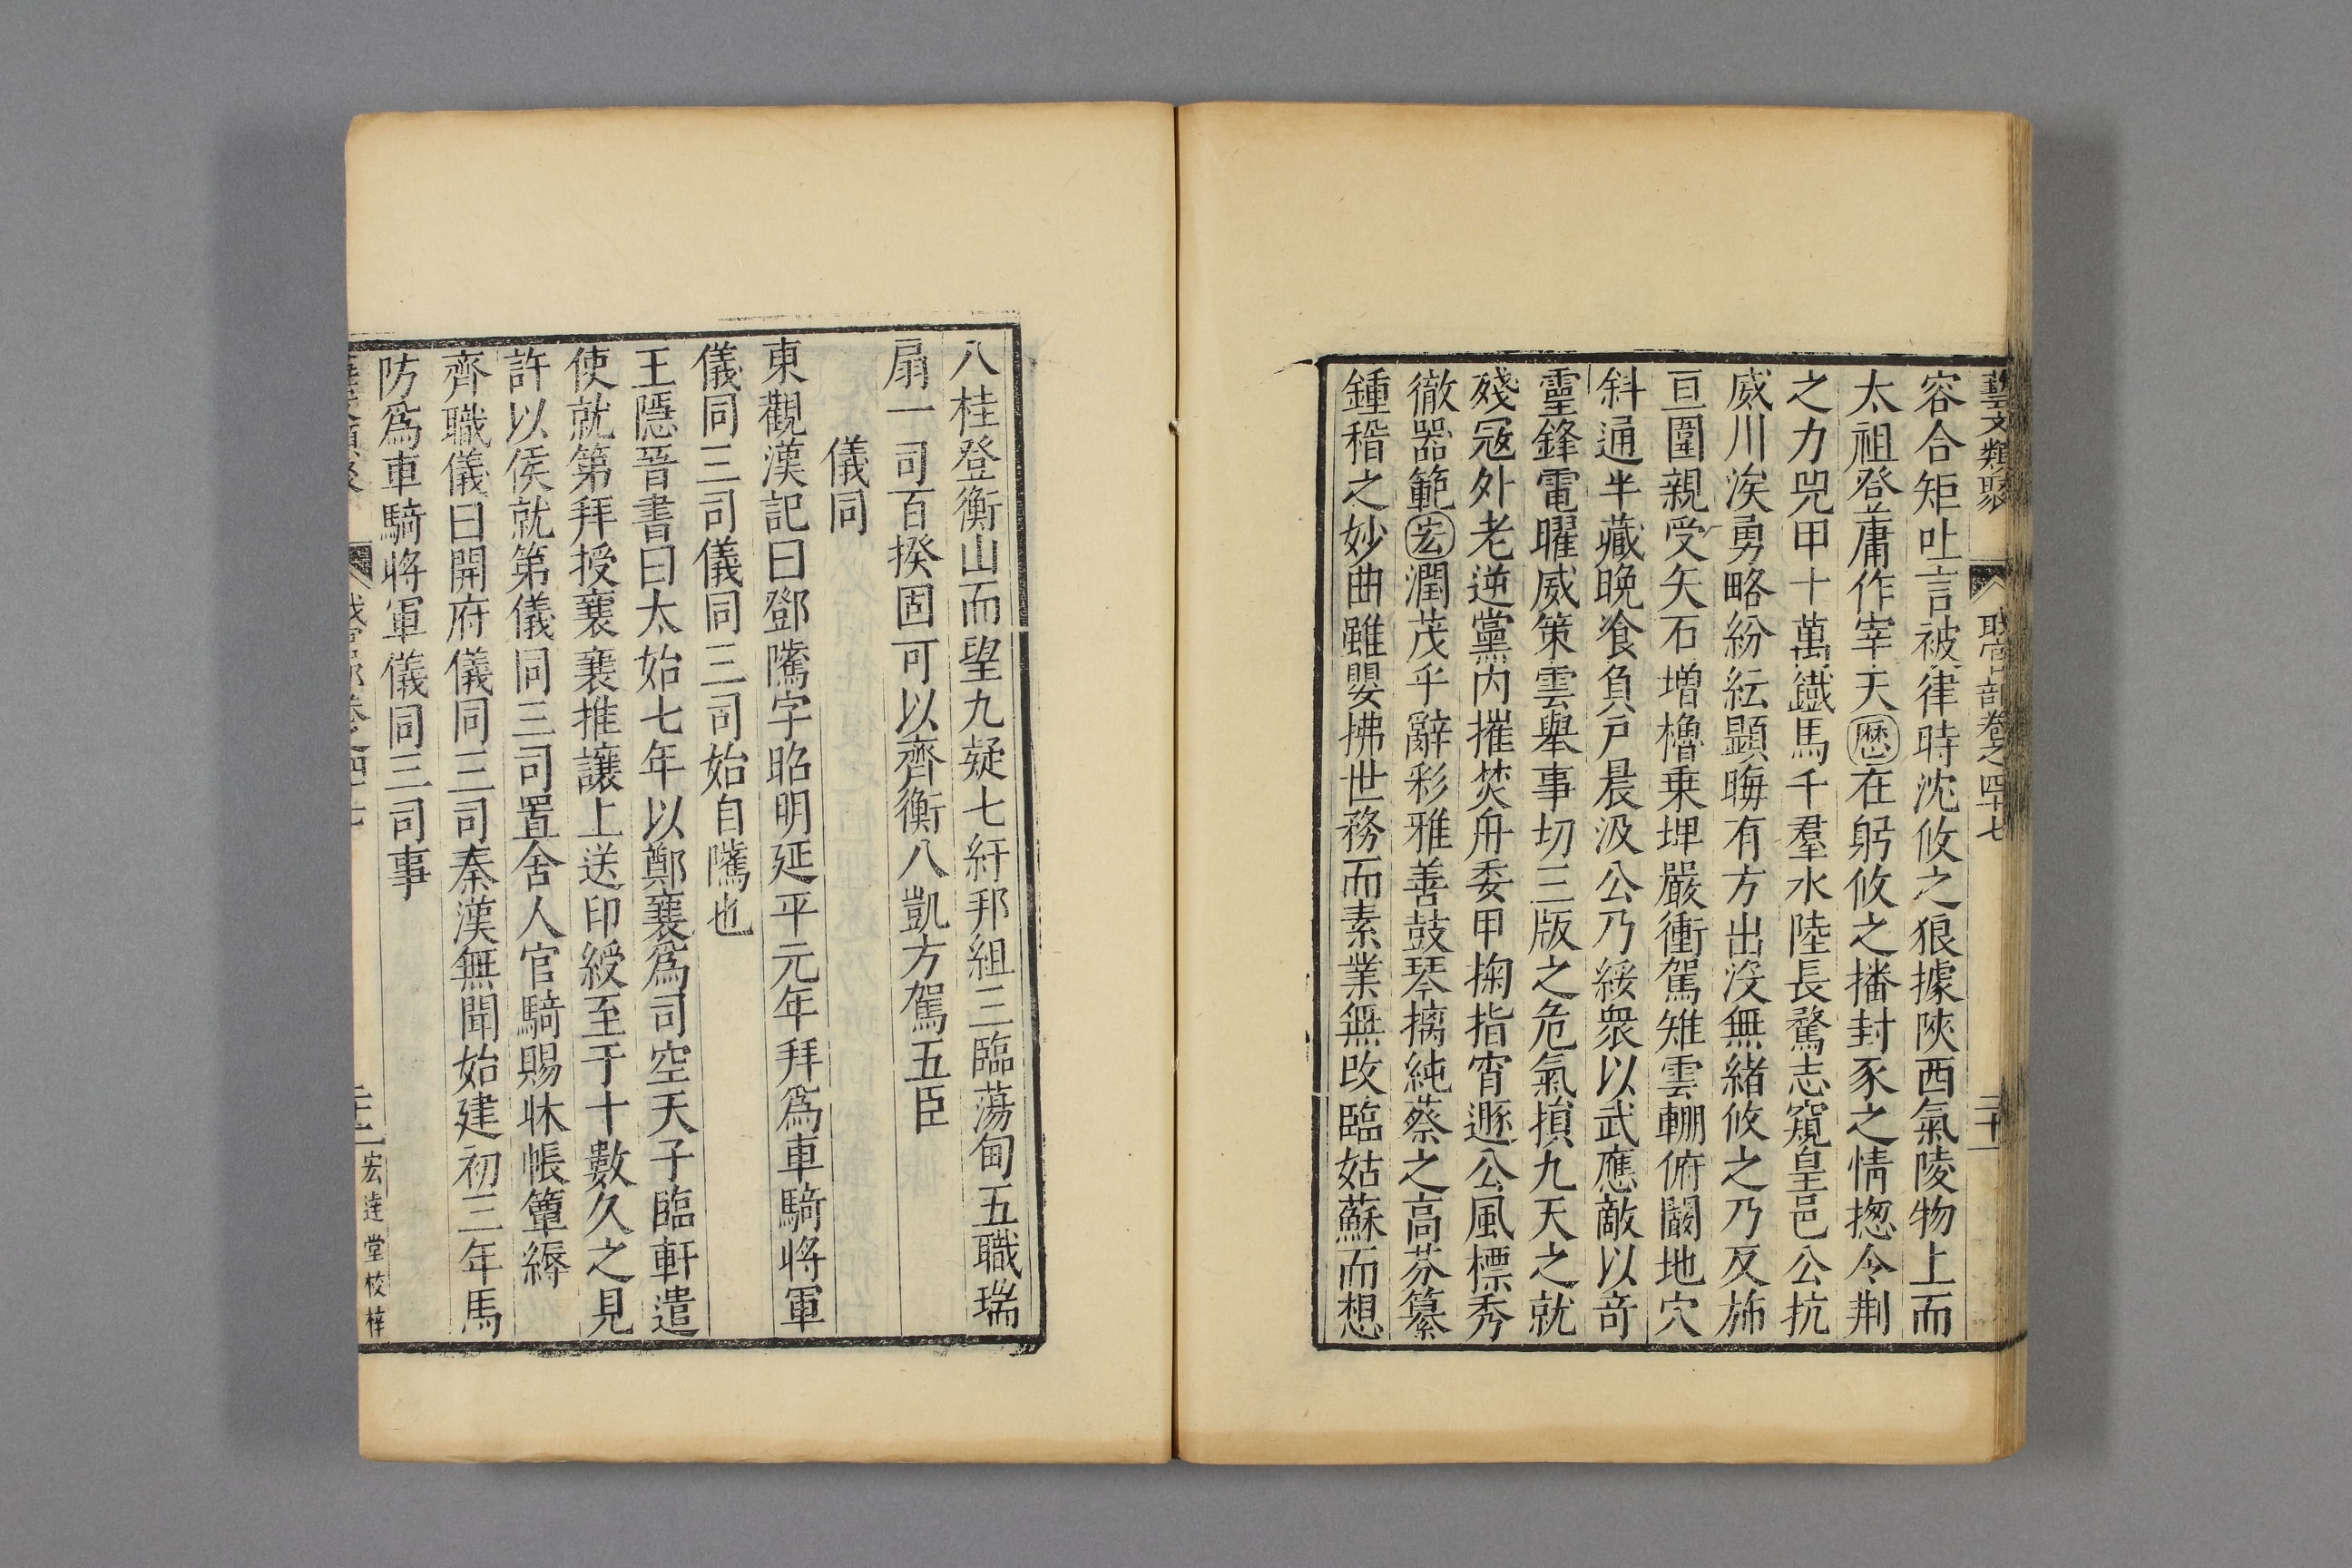 藝文類聚 職官部卷之四十七 二十一
容合矩吐言被律時沈攸之狼據陝西氣陵物上而
太祖登庸作宰天歷在躬攸之播封豕之情揔令荆
之力兕甲十萬鐵馬千羣水陸長騖志窺皇邑公抗
威川涘勇略紛紜顯晦有方出没無緒攸之乃反斾
亘圍親受矢石増櫓乗埤嚴衝駕雉雲輣俯闞地穴
斜通半藏晚飡負戸晨汲公乃綏衆以武應敵以竒
靈鋒電曜威策雲舉事切三版之危氣損九天之就
殘冦外老逆黨内摧焚舟委甲掬指宵遯公風標秀
徹器範宏潤茂乎辭彩雅善鼓琴摛純蔡之高芬纂
鍾稽之妙曲雖嬰拂世務而素業無改臨姑蘇而想
八桂登衡山而望九疑七紆邦組三臨蕩甸五職瑞
扇一司百揆固可以齊衡八凱方駕五臣
儀同
東觀漢記曰鄧騭字昭明延平元年拜爲車騎將軍
儀同三司儀同三司始自騭也
王隱晉書曰太始七年以鄭襄爲司空天子臨軒遣
使就第拜授襄襄推讓上送印綬至于十數久之見
許以侯就第儀同三司置舍人官騎賜牀帳簟縟
齊職儀曰開府儀同三司秦漢無聞始建初三年馬
防爲車騎將軍儀同三司事
宏達堂校梓